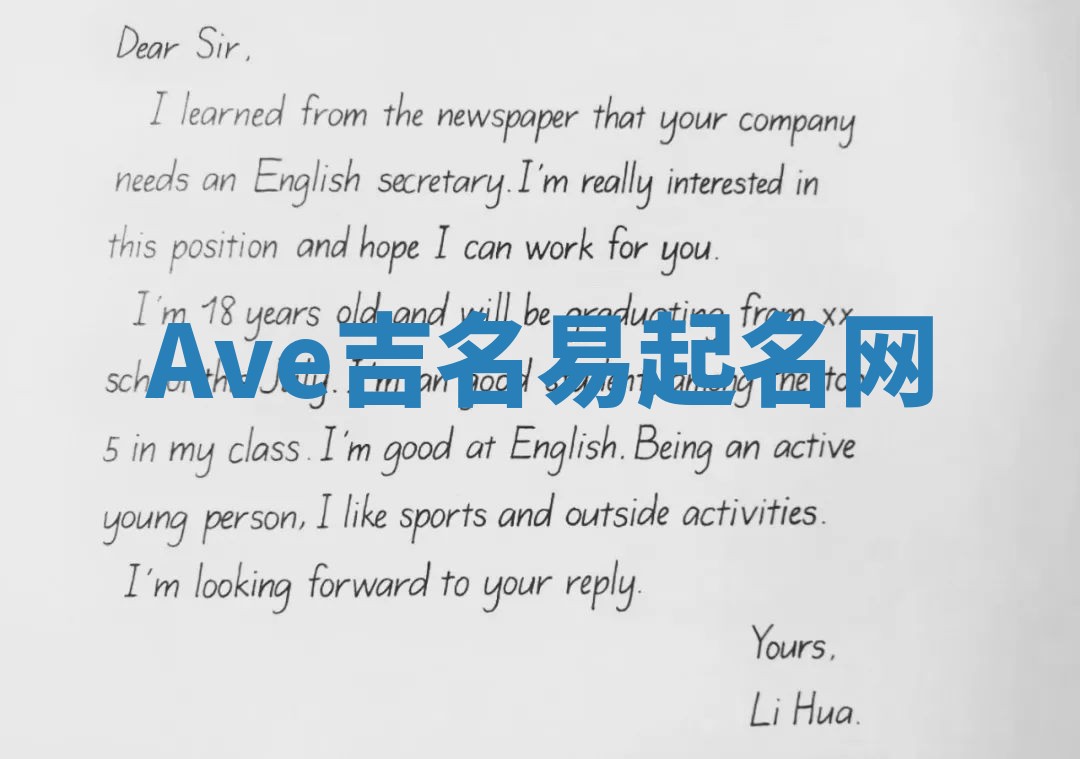 Dear Sir,
I learned from the newspaper that your company
needs an English secretary. I'm really interested in
this position and hope I can work for you.
I'm 18 years old and will be graduating from xx
Ave吉名易起名网
school this July. I'm an good student among the top
5 in my class. I'm good at English. Being an active
young person, I like sports and outside activities.
I'm looking forward to your reply.
Yours,
Li Hua.